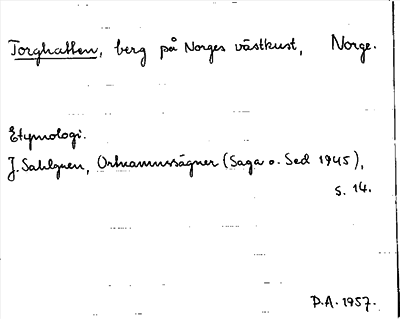 Torghatten, berg på Norges västkust, Norge.
Etymologi.
J. Sahlgren, Ortnamnssägner (Saga o. Sed 1945),
s. 14.
D.A. 1957.